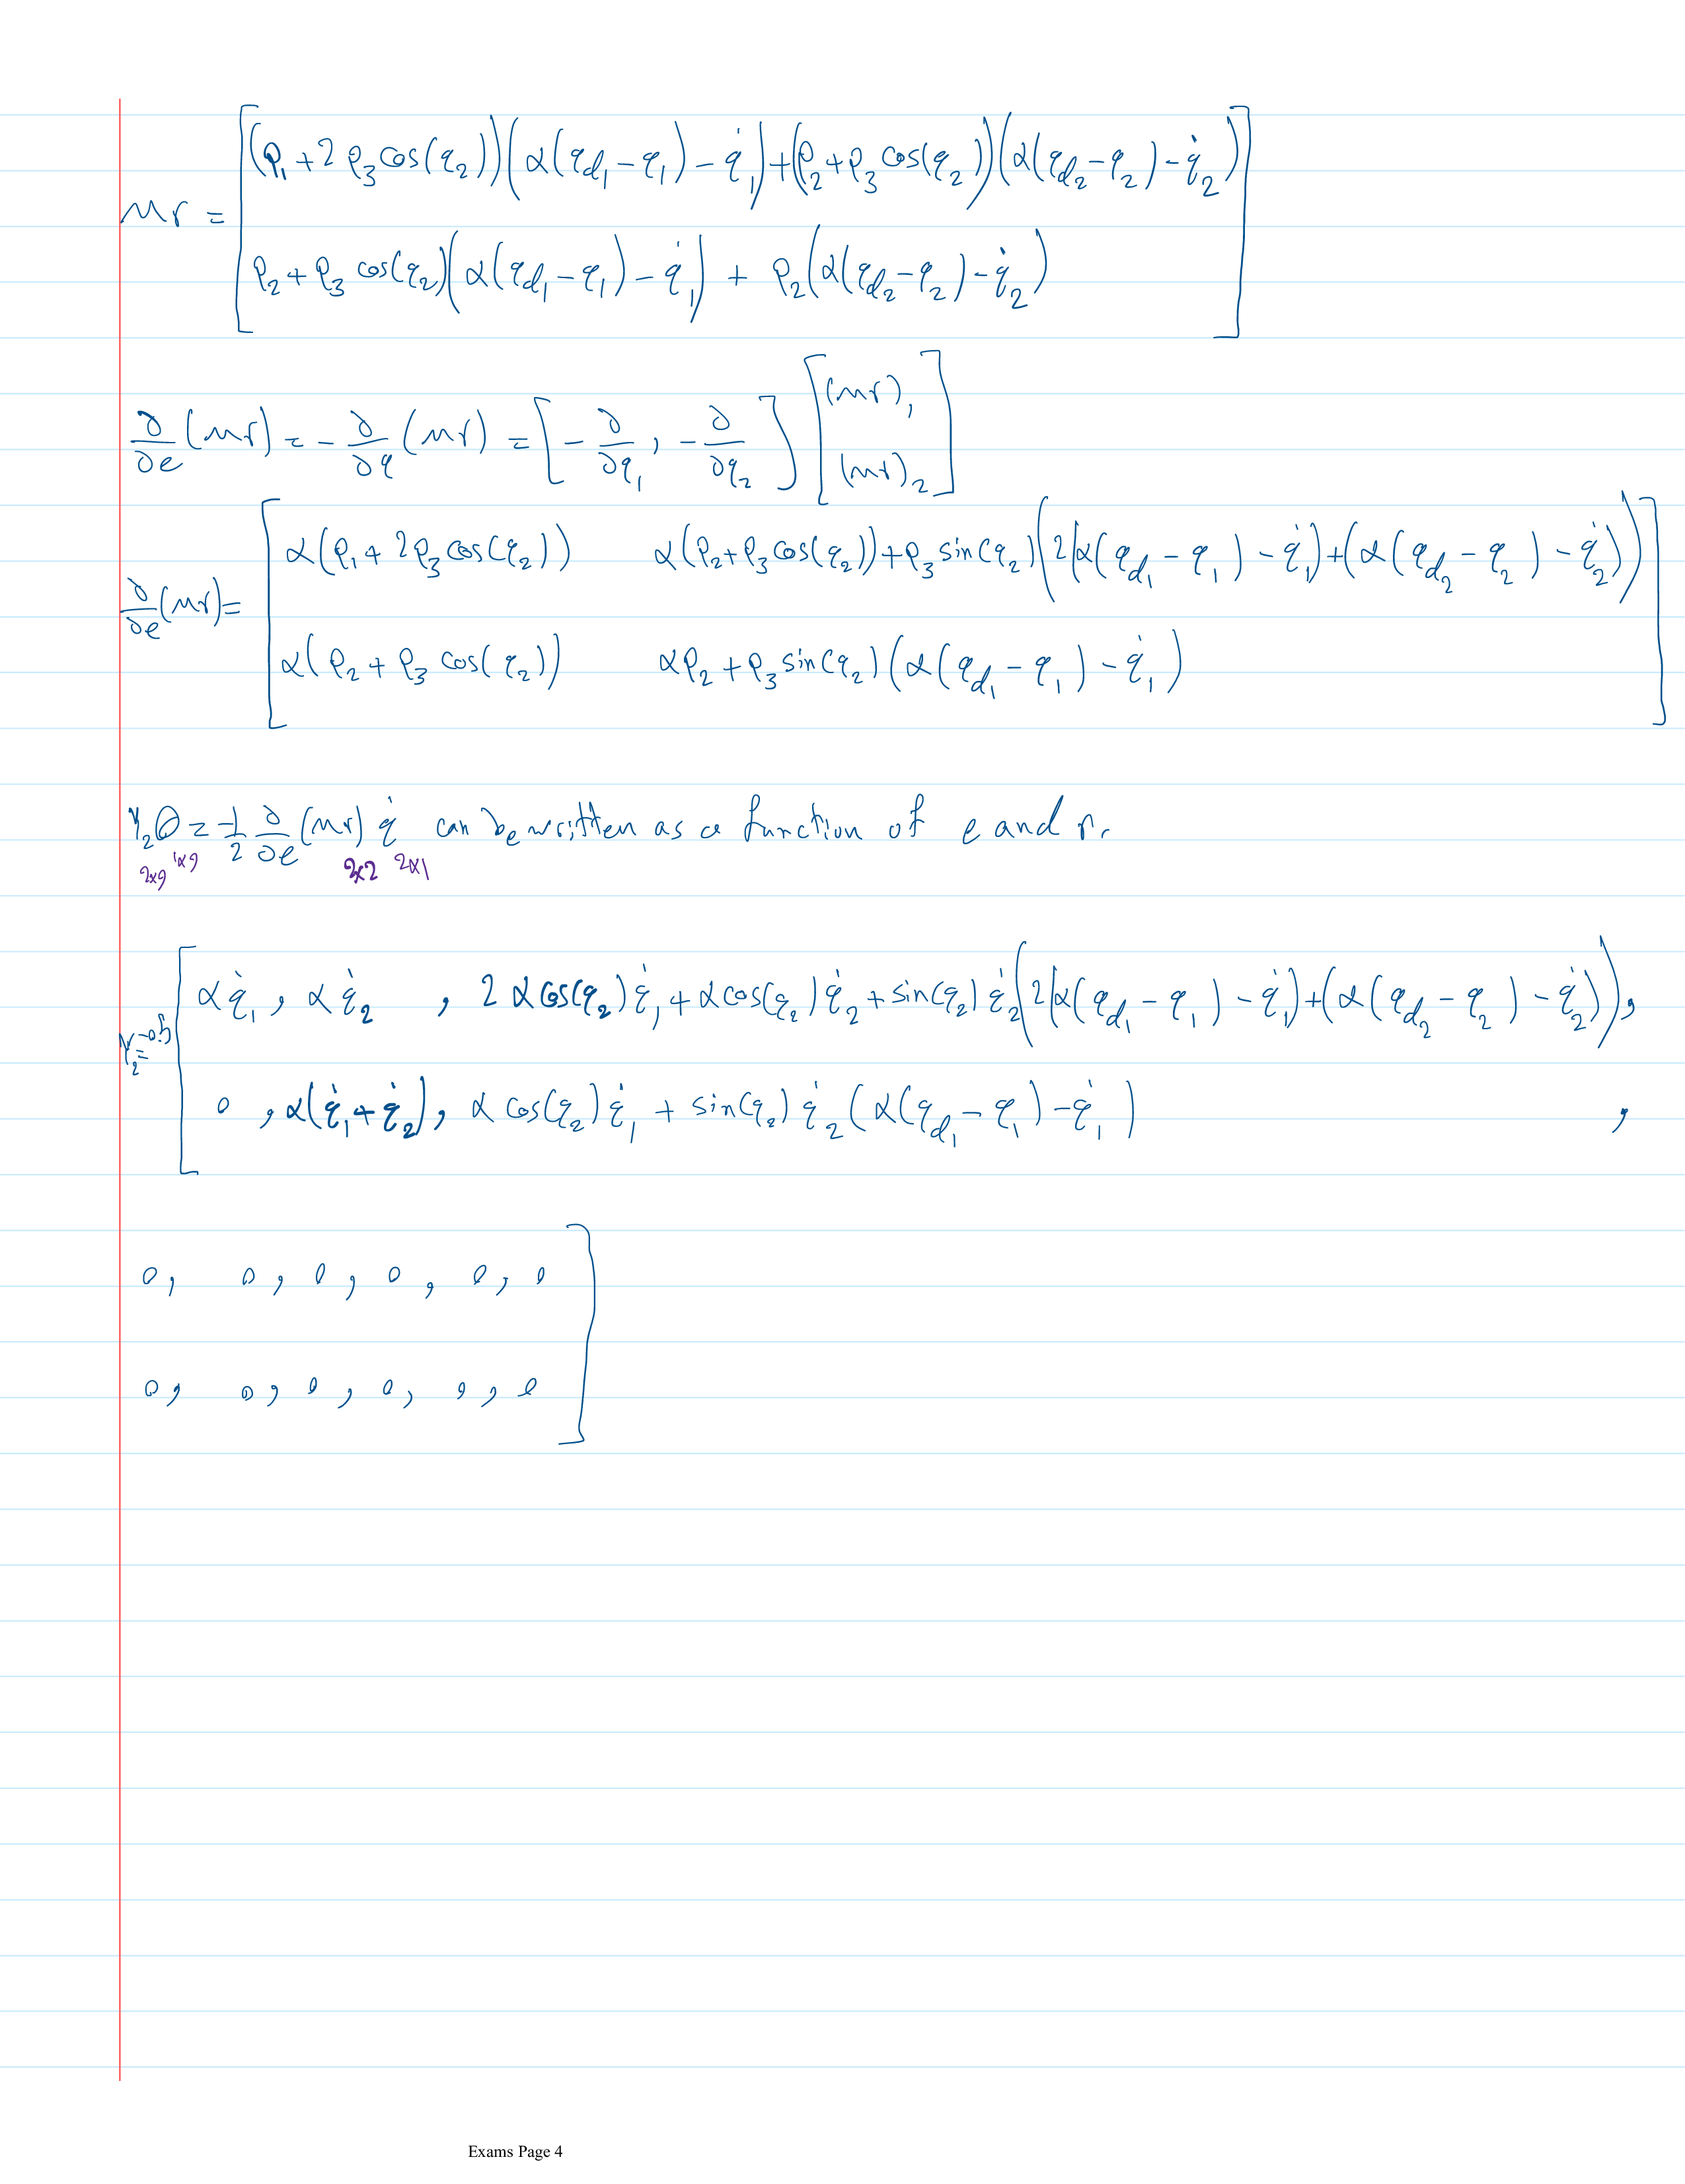 Mr = [ (P₁ + 2 P₃ cos(q₂)) (α(q_d₁ − q₁) − q̇₁) + (P₂ + P₃ cos(q₂)) (α(q_d₂ − q₂) − q̇₂)
P₂ + P₃ cos(q₂) (α(q_d₁ − q₁) − q̇₁) + P₂ (α(q_d₂ − q₂) − q̇₂) ]
∂/∂e (Mr) = − ∂/∂q (Mr) = [ − ∂/∂q₁ , − ∂/∂q₂ ] [ (Mr)₁
(Mr)₂ ]
∂/∂e (Mr) = [ α(P₁ + 2P₃ cos(q₂)) α(P₂ + P₃ cos(q₂)) + P₃ sin(q₂) (2(α(q_d₁ − q₁) − q̇₁) + (α(q_d₂ − q₂) − q̇₂))
α(P₂ + P₃ cos(q₂)) αP₂ + P₃ sin(q₂) (α(q_d₁ − q₁) − q̇₁) ]
Y₂θ = −1/2 ∂/∂e (Mr) q̇ can be written as a function of e and r.
2x9 1x9 2x2 2x1
Y₂ = −0.5 [ α q̇₁ , α q̇₂ , 2 α cos(q₂) q̇₁ + α cos(q₂) q̇₂ + sin(q₂) q̇₂ (2(α(q_d₁ − q₁) − q̇₁) + (α(q_d₂ − q₂) − q̇₂)) ,
0 , α(q̇₁ + q̇₂) , α cos(q₂) q̇₁ + sin(q₂) q̇₂ (α(q_d₁ − q₁) − q̇₁) ,
0, 0, 0, 0, 0, 0
0, 0, 0, 0, 0, 0 ]
Exams Page 4